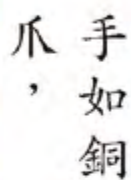 手如銅
爪，